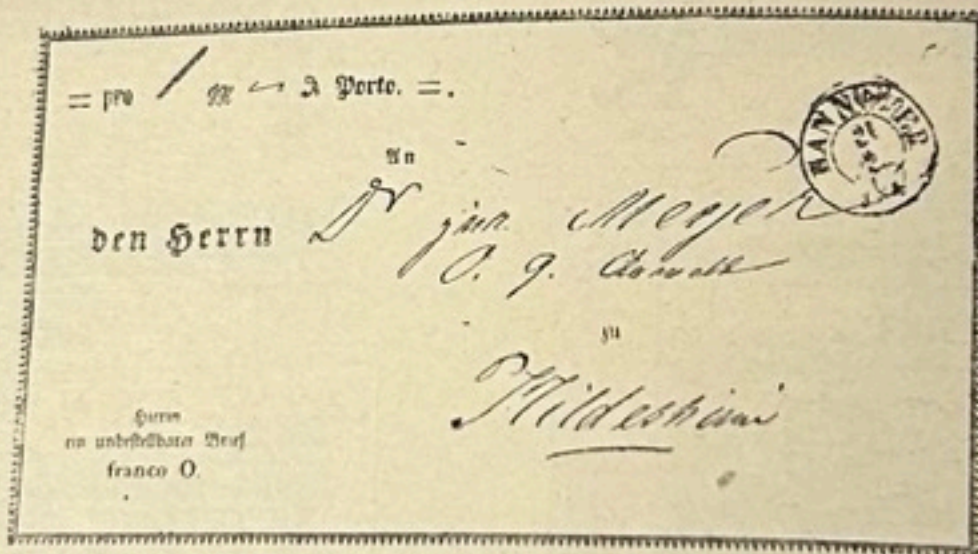 = pro / M — ₰ Porto. =.
HANNOVER
An
den Herrn Dr jur. Meyer
O. G. Anwalt
zu
Hildesheim
Hierin
ein unbestellbarer Brief
franco O.